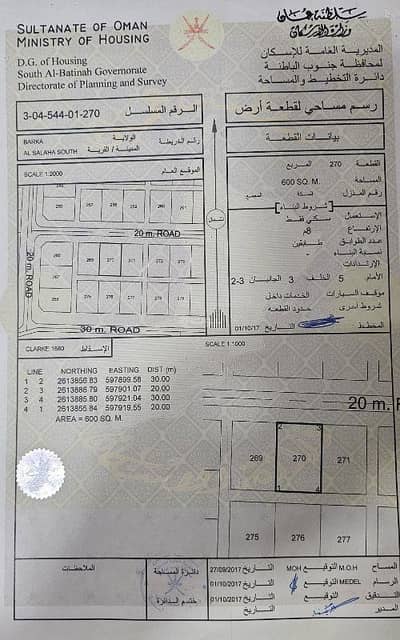 SULTANATE OF OMAN
MINISTRY OF HOUSING
سلطنة عمان
وزارة الإسكان
D.G. of Housing
South Al-Batinah Governorate
Directorate of Planning and Survey
المديرية العامة للإسكان
لمحافظة جنوب الباطنة
دائرة التخطيط والمساحة
3-04-544-01-270
الرقم المسلسل
رسم مساحي لقطعة أرض
BARKA
الولاية
AL SALAHA SOUTH
المدينة / القرية
رقم الخريطة
بيانات القطعة
SCALE 1:2000
الموقع العام
القطعة 270 المربع
المساحة 600 SQ. M.
رقم المنزل
شروط البناء
الإستعمال سكني فقط
الإرتفاع 8م
عدد الطوابق طابقين
نسبة البناء
الإرتدادات
الأمام 5 الخلف 3 الجانبان 3-2
موقف السيارات الخدمات داخل
شروط أخرى حدود القطعة
المخطط التاريخ 01/10/17
شمال
20 m. ROAD
20 m. ROAD
30 m. ROAD
CLARKE 1880
الإسقاط
SCALE 1:1000
LINE NORTHING EASTING DIST (m)
1 2 2613856.83 597899.58 30.00
2 3 2613886.79 597901.07 20.00
3 4 2613885.80 597921.04 30.00
4 1 2613855.84 597919.55 20.00
AREA = 600 SQ. M.
20 m. R
2 3
269 270 271
1 4
275 276 277
الملاحظات
دائرة المساحة
ختم الدائرة
المساح M.O.H التوقيع MOH التاريخ 27/09/2017
الرسام MEDEL التوقيع التاريخ 01/10/2017
التدقيق التوقيع التاريخ 01/10/2017
المدير التاريخ